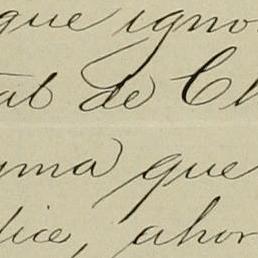 que igno
tal de Ch
yma que
dice, ahor